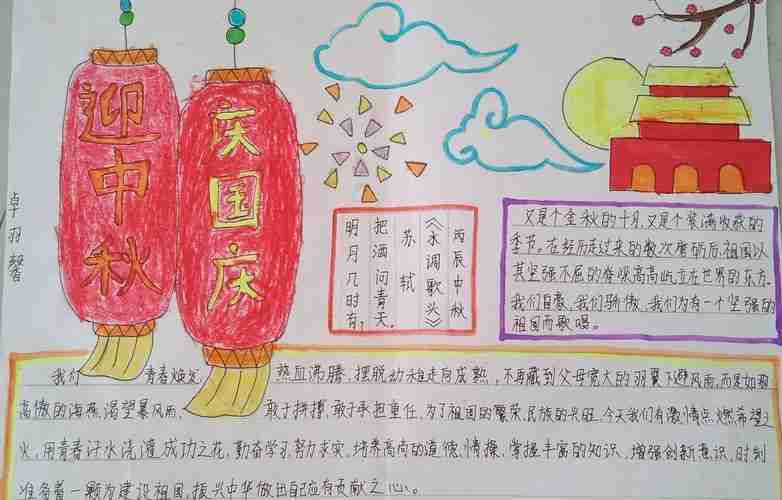 卓羽馨
迎中秋
庆国庆
明月几时有,
把酒问青天。
苏轼
《水调歌头》
丙辰中秋
又是个金秋的十月,又是个装满收获的
季节。在经历走过来的数次磨砺后,祖国以
甚坚强不屈的脊梁高高屹立在世界的东方.
我们自豪,我们骄傲,我们为有一个坚强的
祖国而歌唱。
我们 青春焕发 热血沸腾,摆脱幼稚走向成熟,不再藏到父母宽大的羽翼下避风雨,而是如那
高傲的海燕渴望暴风雨 敢于拼搏,敢于承担重任,为了祖国的繁荣,民族的兴旺,今天我们有激情点燃希望之
火,用青春汗水浇灌成功之花,勤奋学习,努力求实,培养高尚的道德,情操,掌握丰富的知识,增强创新意识,时刻
准备着一颗为建设祖国,振兴中华做出自己应有贡献之心。